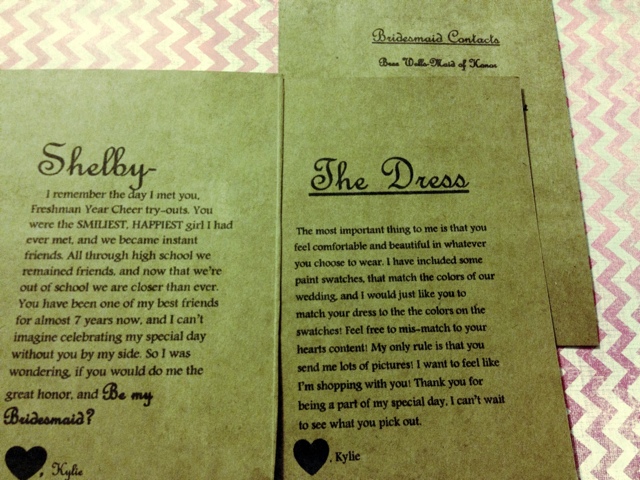 Bridesmaid Contacts
Bree Wells-Maid of Honor
Shelby-
I remember the day I met you,
Freshman Year Cheer try-outs. You
were the SMILIEST, HAPPIEST girl I had
ever met, and we became instant
friends. All through high school we
remained friends, and now that we're
out of school we are closer than ever.
You have been one of my best friends
for almost 7 years now, and I can't
imagine celebrating my special day
without you by my side. So I was
wondering, if you would do me the
great honor, and Be my
Bridesmaid?
, Kylie
The Dress
The most important thing to me is that you
feel comfortable and beautiful in whatever
you choose to wear. I have included some
paint swatches, that match the colors of our
wedding, and I would just like you to
match your dress to the the colors on the
swatches! Feel free to mis-match to your
hearts content! My only rule is that you
send me lots of pictures! I want to feel like
I'm shopping with you! Thank you for
being a part of my special day, I can't wait
to see what you pick out.
, Kylie